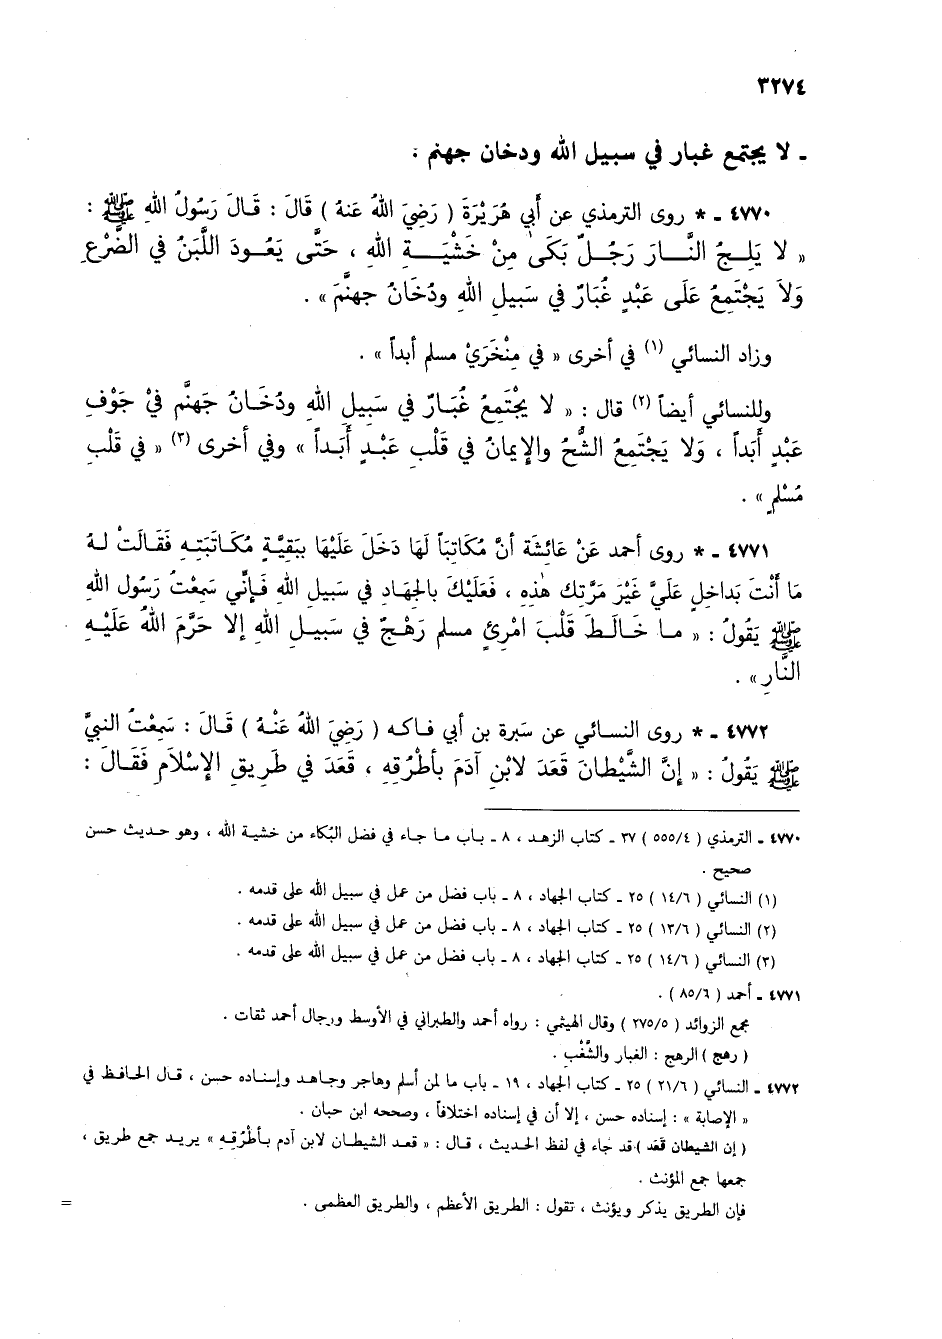 ٣٢٧٤
ـ لا يجتمع غبار في سبيل الله ودخان جهنم :
٤٧٧٠ ـ * روى الترمذي عن أَبي هُرَيْرَةَ ( رَضِيَ اللهُ عَنهُ ) قَالَ : قَالَ رَسُولُ اللهِ ﷺ :
« لا يَلِجُ النَّارَ رَجُلٌ بَكَى مِنْ خَشْيَةِ اللهِ ، حَتَّى يَعُودَ اللَّبَنُ في الضَّرْعِ
وَلاَ يَجْتَمِعُ عَلَى عَبْدٍ غُبَارٌ في سَبِيلِ اللهِ ودُخَانُ جهنَّمَ » .
وزاد النسائي (١) في أخرى « في مِنْخَرَيْ مسلم أبداً » .
وللنسائي أيضاً (٢) قال : « لا يجْتَمِعُ غُبَارٌ في سَبِيلِ اللهِ ودُخَانُ جَهنَّم فيْ جَوْفِ
عَبْدٍ أَبَداً ، وَلا يَجْتَمِعُ الشُّحُ والإيمانُ في قَلْبِ عَبْدٍ أَبَداً » وفي أخرى (٣) « في قَلْبِ
مُسْلمٍ » .
٤٧٧١ ـ * روى أحمد عَنْ عَائِشَة أنَّ مُكَاتِبَاً لَهَا دَخَلَ عَلَيْهَا ببَقِيَّةِ مُكَاتَبَتِهِ فَقَالَتْ لهُ
مَا أَنْتَ بَداخِلٍ عَلَيَّ غَيْرَ مَرَّتِكَ هٰذِهِ ، فَعَلَيْكَ بالجْهَادِ في سَبيلِ اللهِ فَإنِّي سَمِعْتُ رَسُول اللهِ
ﷺ يَقُولُ : « ما خَالَطَ قَلْبَ امْرِئٍ مسلم رَهْجٌ في سَبِيلِ اللهِ إلا حَرَّمَ اللهُ عَلَيْهِ
النَّارَ » .
٤٧٧٢ ـ * روى النسائي عن سَبرة بن أبي فاكه ( رَضِيَ اللهُ عَنْهُ ) قَالَ : سَمِعْتُ النبيَّ
ﷺ يَقُولُ : « إنَّ الشَّيْطَانَ قَعَدَ لابْنِ آدَمَ بأَطْرُقِهِ ، قَعَدَ في طَرِيقِ الإسْلاَمِ فَقَالَ :
٤٧٧٠ ـ الترمذي ( ٥٥٥/٤ ) ٣٧ ـ كتاب الزهد ، ٨ ـ باب ما جاء في فضل البُكاء من خشية الله ، وهو حديث حسن
صحيح .
(١) النسائي ( ١٤/٦ ) ٢٥ ـ كتاب الجهاد ، ٨ ـ باب فضل من عمل في سبيل الله على قدمه .
(٢) النسائي ( ١٣/٦ ) ٢٥ ـ كتاب الجهاد ، ٨ ـ باب فضل من عمل في سبيل الله على قدمه .
(٣) النسائي ( ١٤/٦ ) ٢٥ ـ كتاب الجهاد ، ٨ ـ باب فضل من عمل في سبيل الله على قدمه .
٤٧٧١ ـ أحمد ( ٨٥/٦ ) .
مجمع الزوائد ( ٢٧٥/٥ ) وقال الهيثمي : رواه أحمد والطبراني في الأوسط ورجال أحمد ثقات .
( رهج ) الرهج : الغبار والشَّغْب .
٤٧٧٢ ـ النسائي ( ٢١/٦ ) ٢٥ ـ كتاب الجهاد ، ١٩ ـ باب ما لمن أسلم وهاجر وجاهد وإسناده حسن ، قال الحافظ في
« الإصابة » : إسناده حسن ، إلا أن في إسناده اختلافاً ، وصححه ابن حبان .
( إن الشيطان قعَد ) قد جاء في لفظ الحديث ، قال : « قعد الشيطان لابن آدم بأطْرُقِه » يريد جمع طريق ،
جمعها جمع المؤنث .
فإن الطريق يذكر ويؤنث ، تقول : الطريق الأعظم ، والطريق العظمى .
=